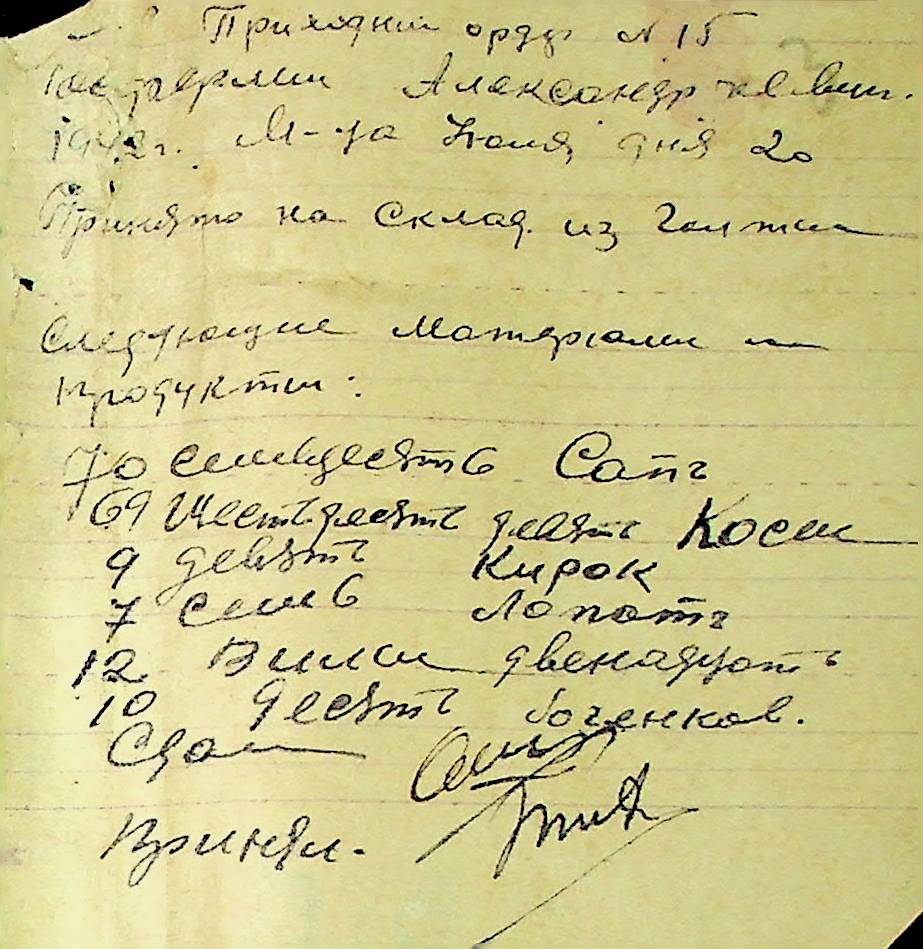 Приходний ордер N 15
Госфермии Александр
1942 г. М-ца Июля дня 20
Принято на склад из
Следующие Материали
продукти:
70 семьдесять Сапъ
69 Шестьдесятъ девять Коси
9 девятъ Кирок
7 семь Лопатъ
12 Вили двенадцать
10 десятъ боченков.
Сдал
Принял.